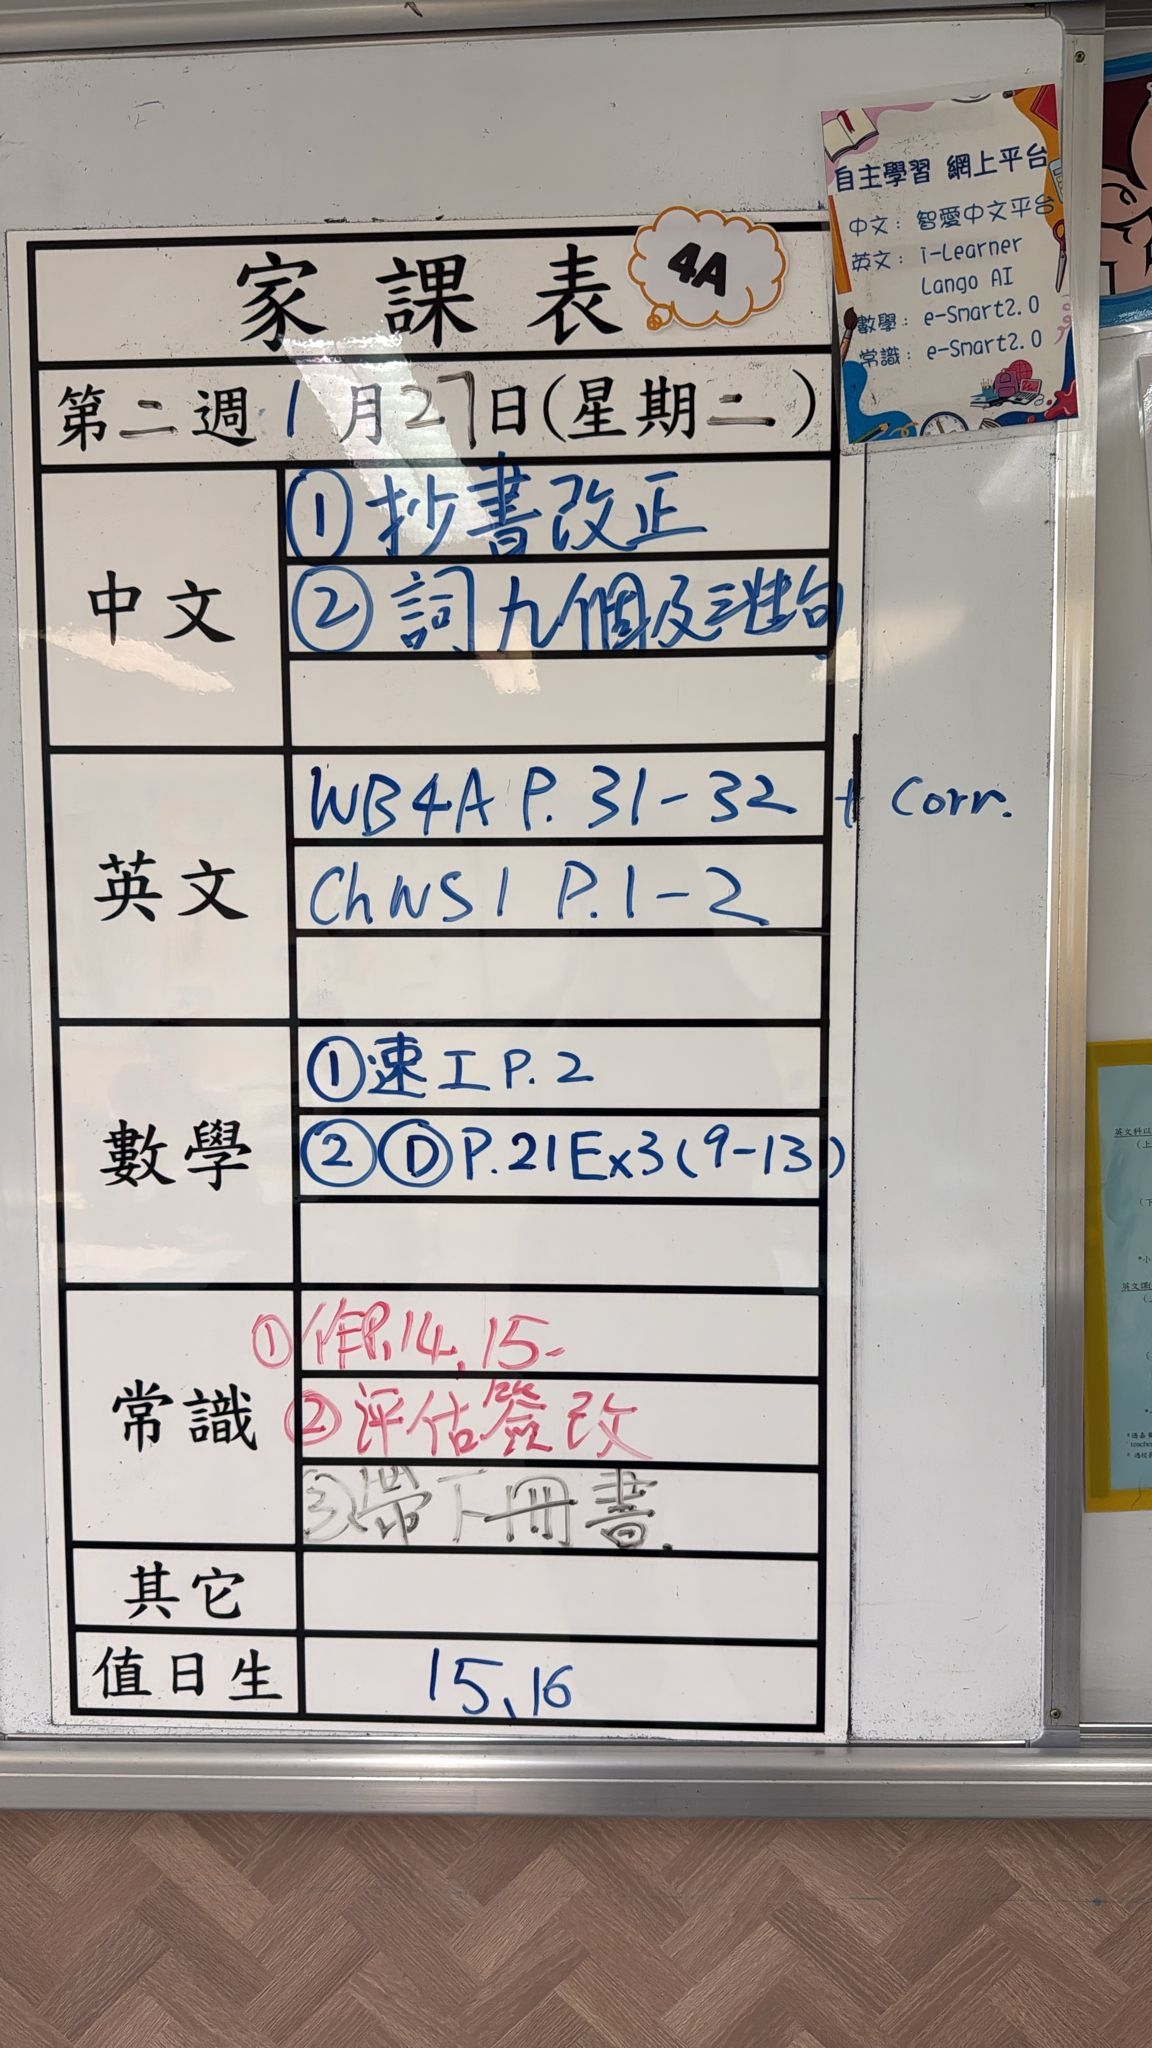 自主學習 網上平台
中文：智愛中文平台
英文：i-Learner
Lango AI
數學：e-Smart2.0
常識：e-Smart2.0
家課表
4A
第二週 1月27日(星期二)
中文
①抄書改正
②詞九個及三造句
英文
WB4A P. 31-32 + Corr.
ChWS1 P.1-2
數學
①速工P.2
②Ⓓ P.21Ex3(9-13)
常識
①作P.14, 15-
②评估簽改
③帶下冊書.
其它
值日生
15、16